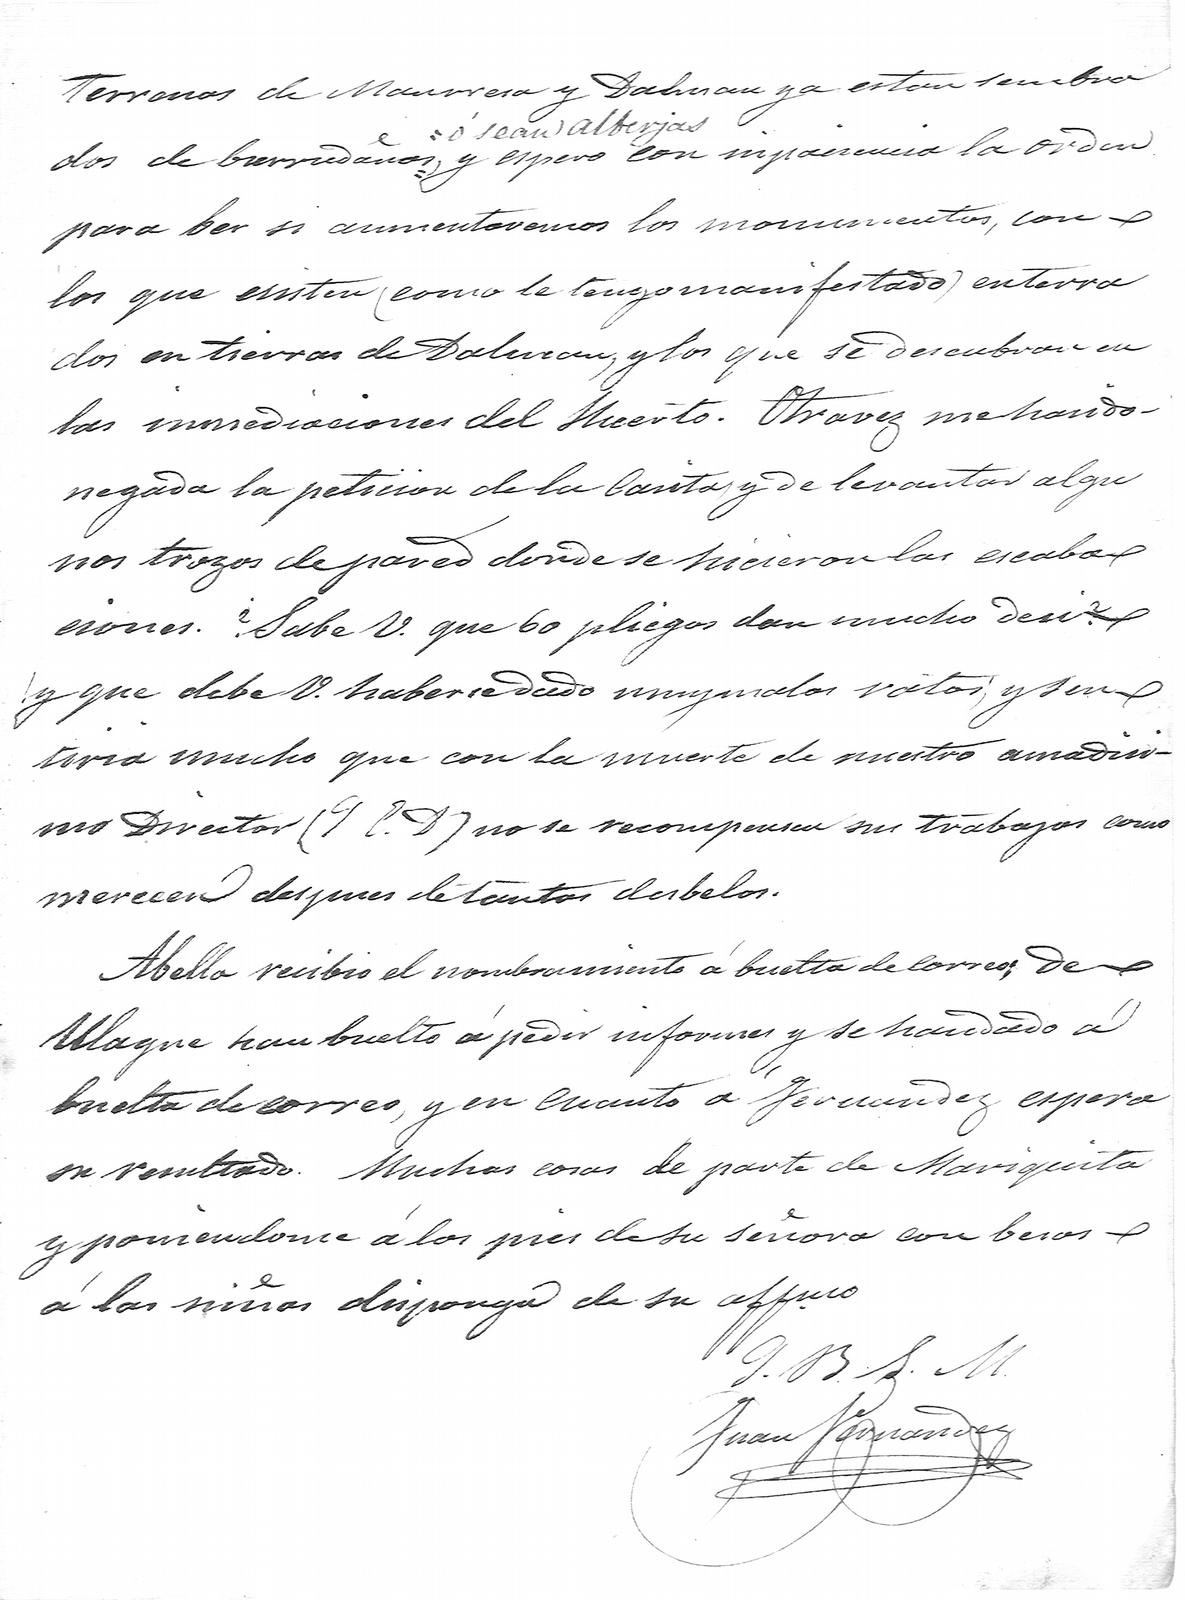 Terrenos de Maurresa y Dalmau ya estan sembra
ó sean alberjas
dos de burrudanas, y espero con inpaciencia la orden
para ber si aumentaremos los monumentos, con
los que esisten (como le tengo manifestado) enterra
dos en tierras de Dalmau, y los que se descubran en
las inmediaciones del Huerto. Otravez me han do-
negada la peticion de la Casita, y de levantar algu
nos trozos de pared donde se hicieron las escaba
ciones. ¿Sabe V. que 60 pliegos dan mucho decir?
y que debe V. haberse dado muy malos ratos, y sen
tiria mucho que con la muerte de nuestro amadisi-
mo Director (q e. D) no se recompensen sus trabajos como
merecen despues de tantos desbelos.
Abella recibio el nombramiento á buelta de correo, de
Ullague han buelto á pedir informes y se han dado á
buelta de correo, y en cuanto á Fernandez espera
su resultado. Muchas cosas de parte de Mariquita
y poniendome á los pies de su señora con besos
á las niñas disponga de su affmo
Q. B. S. M.
Juan Fernandez